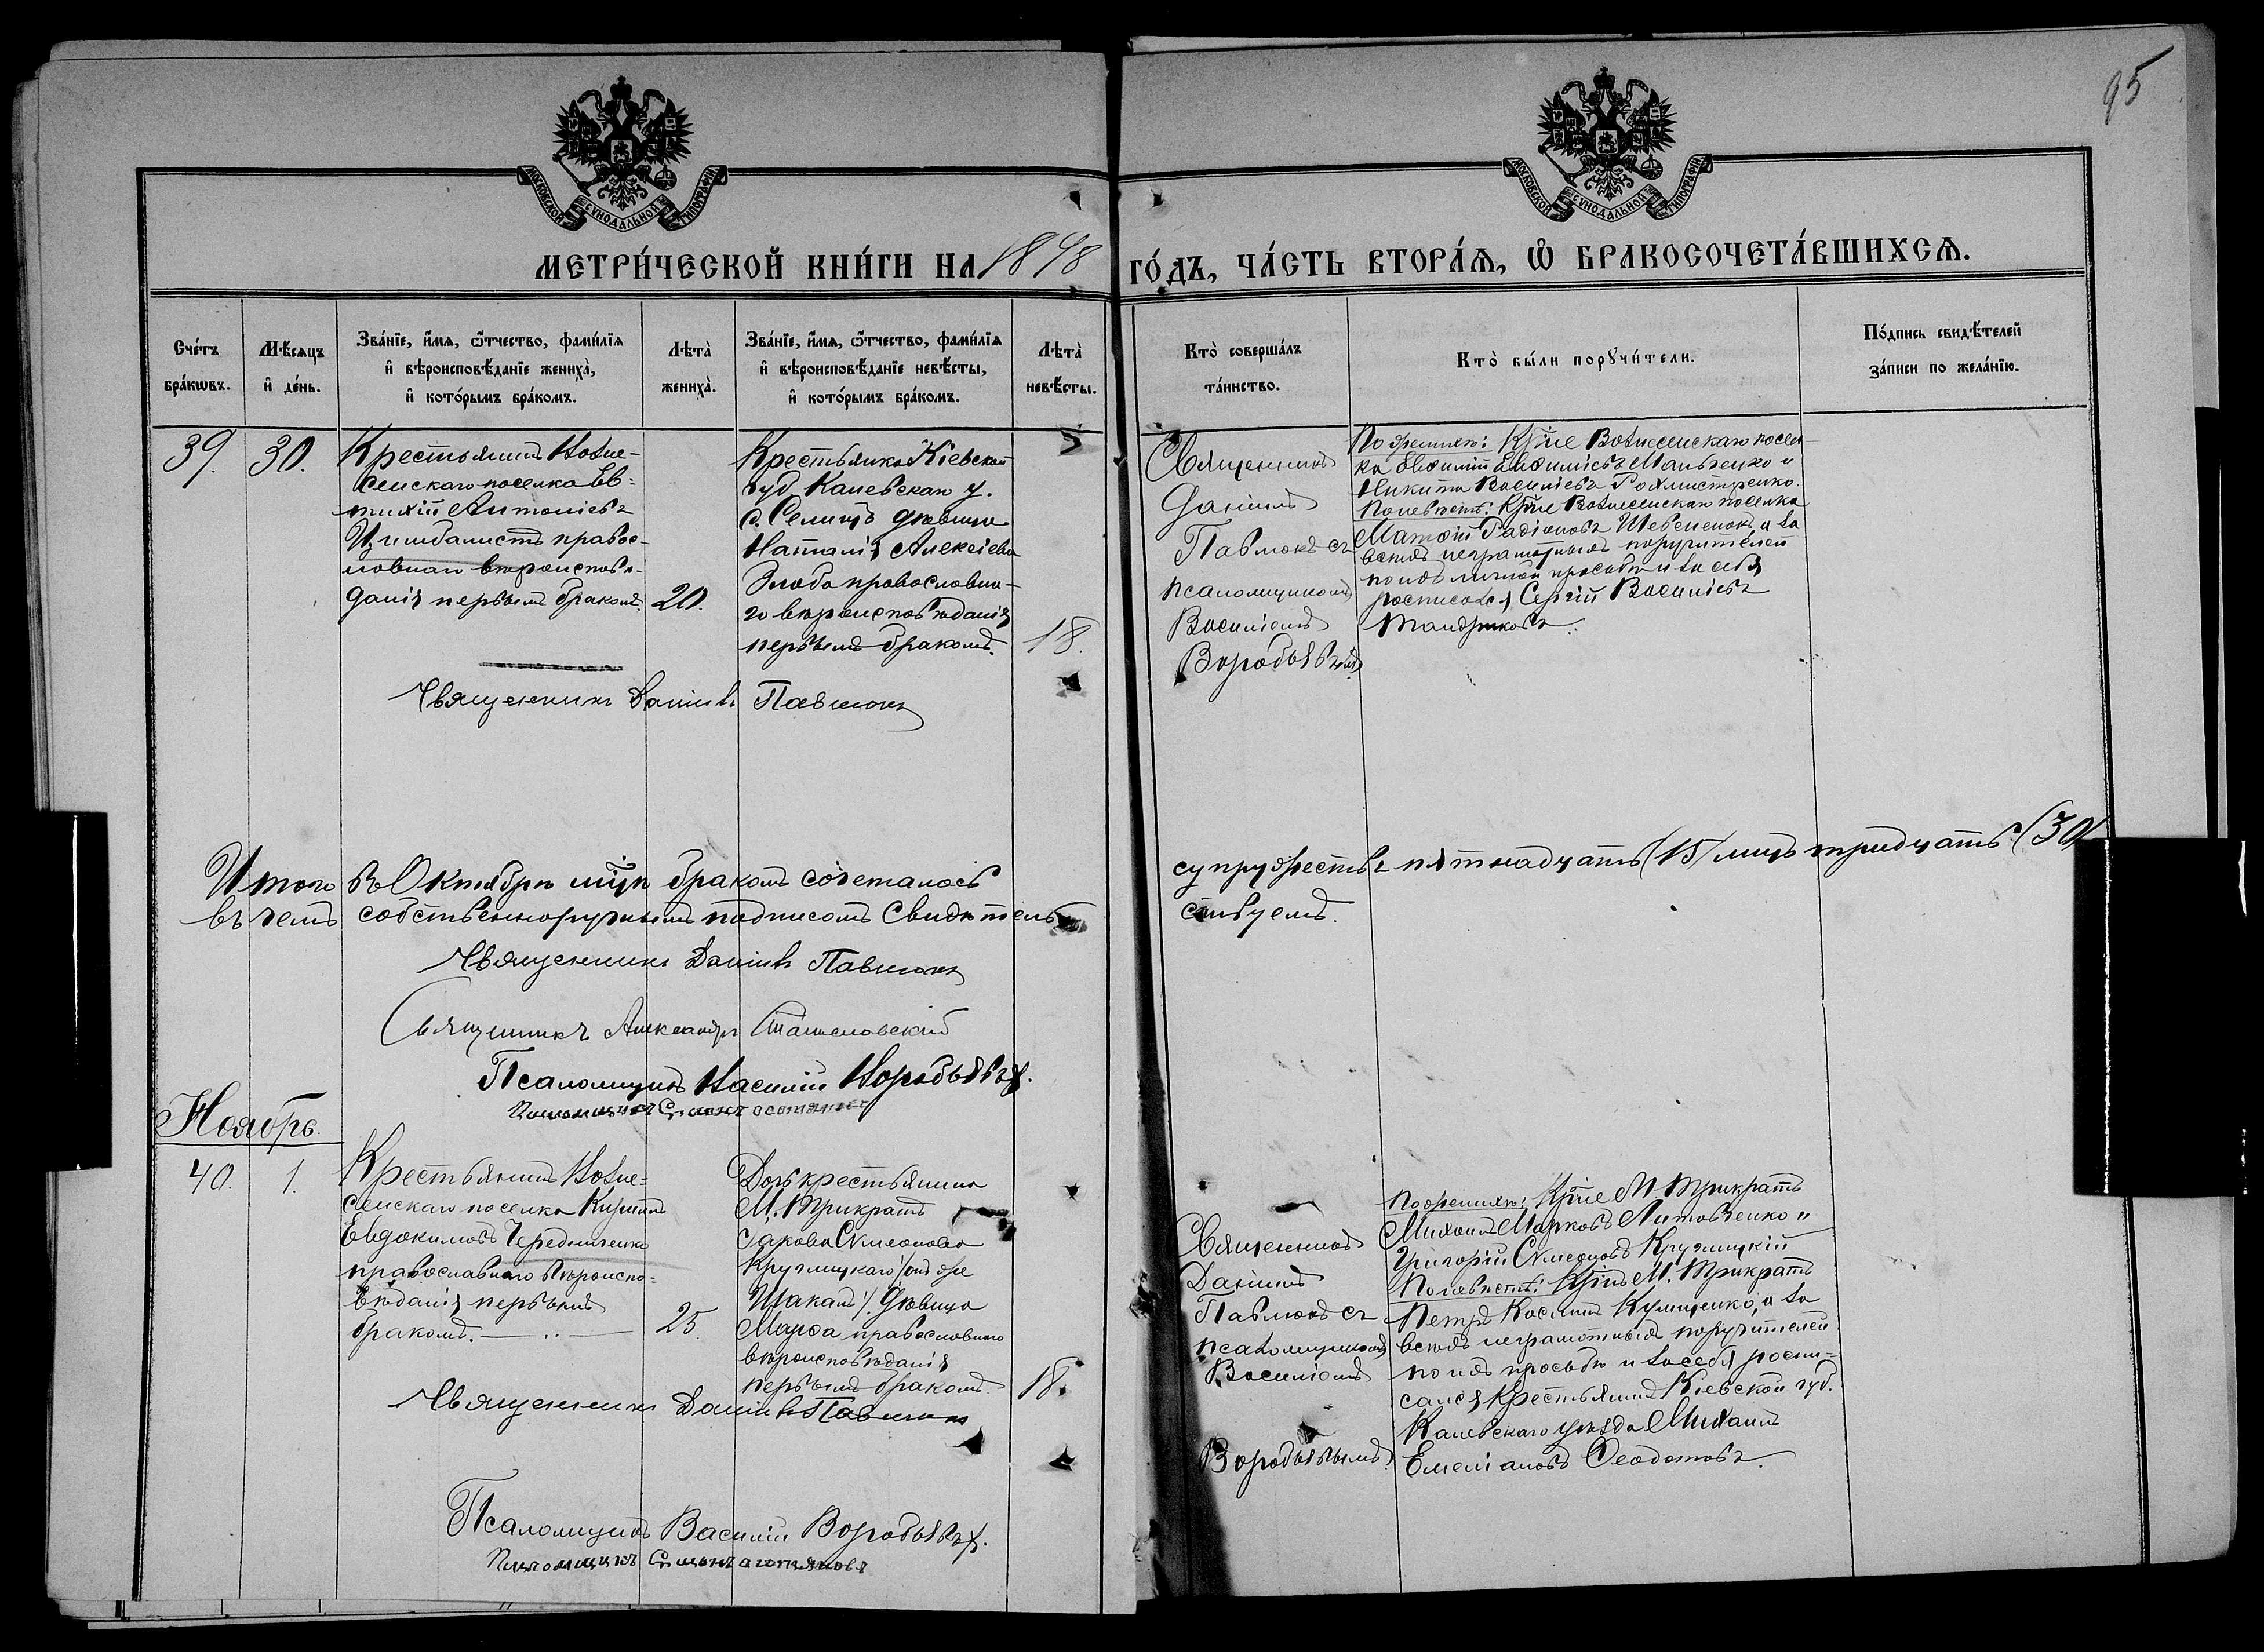 95
МОСКОВСКОЙ СУНОДАЛЬНОЙ ТИПОГРАФІИ
МОСКОВСКОЙ СУНОДАЛЬНОЙ ТИПОГРАФІИ
МЕТРИ́ЧЕСКОЙ КНИ́ГИ НА 1898 ГО́ДЪ, ЧА́СТЬ ВТОРА́Я, Ѡ҆ БРАКОСОЧЕТА́ВШИХСЯ.
Сче́тъ
бра́кѡвъ.
Мѣ́сяцъ
и҆ де́нь.
Зва́нїе, и҆́мя, ѻ҆́тчество, фами́лїя
и҆ вѣроисповѣ́данїе женихà,
и҆ кото́рымъ бра́комъ.
Лѣтà
женихà.
Зва́нїе, и҆́мя, ѻ҆́тчество, фами́лїя
и҆ вѣроисповѣ́данїе невѣ́сты,
и҆ кото́рымъ бра́комъ.
Лѣтà
невѣ́сты.
Кто̀ соверша́лъ
та́инство.
Кто̀ бы́ли порꙋчи́тели.
По́дпись свидѣ́телей
за́писи по жела́нїю.
39.
30.
Крестьянинъ Возне-
сенскаго поселка Ев-
тихій Антоніевъ
правос-
лавнаго вѣроисповѣ-
данія первымъ бракомъ.
20.
Крестьянка Кіевской
губ Каневскаго у.
с. Селищъ дѣвица
Наталія Алексіева
Злоба православна-
го вѣроисповѣданія
первымъ бракомъ.
18.
Священникъ
Даніилъ
Павлюкъ съ
псаломщикомъ
Василіемъ
Воробьевымъ
По женихѣ: Кр̃не Вознесенскаго посел-
ка Евѳимій Евѳиміевъ Мальченко и
Никита Василіевъ Рохмистренко.
По невѣстѣ: Кр̃не Вознесенскаго поселка
Матѳій Радіоновъ Шевченокъ и за
всѣхъ неграмотныхъ поручителей
по ихъ личной просьбѣ и за себя
росписался Сергій Василіевъ
Священникъ Даніилъ Павлюкъ
Итого въ Октябрѣ мц̃ѣ бракомъ сочеталось супружествъ пятнадцать (15) лицъ тридцать (30)
въ чемъ собственноручнымъ подписомъ Свидѣтель ствуемъ.
Священникъ Даніилъ Павлюкъ
Священникъ Александръ
Псаломщикъ Василій Воробьевъ.
Псаломщикъ
Ноябрь.
40.
1.
Крестьянинъ Возне-
сенскаго поселка Кириллъ
Евдокимовъ Чередниченко
православнаго вѣроиспо-
вѣданія первымъ
бракомъ.
25.
Дочь крестьянина
М. Трикратъ
Іакова Сѵмеонова
дѣвица
Марѳа православнаго
вѣроисповѣданія
первымъ бракомъ.
18.
Священникъ
Даніилъ
Павлюкъ съ
псаломщикомъ
Василіемъ
Воробьевымъ.
По женихѣ: Кр̃не М. Трикратъ
Михаилъ Марковъ Литовченко и
Григорій Сѵмеоновъ Кручицкій
По невѣстѣ: Кр̃нъ М. Трикратъ
Петръ Косминъ и за
всѣхъ неграмотныхъ поручителей
по ихъ просьбѣ и за себя роспи-
сался Крестьянинъ Кіевской губ.
Каневскаго уѣзда Михаилъ
Емеліановъ Ѳеодотовъ.
Священникъ Даніилъ Павлюкъ
Псаломщикъ Василій Воробьевъ.
Псаломщикъ